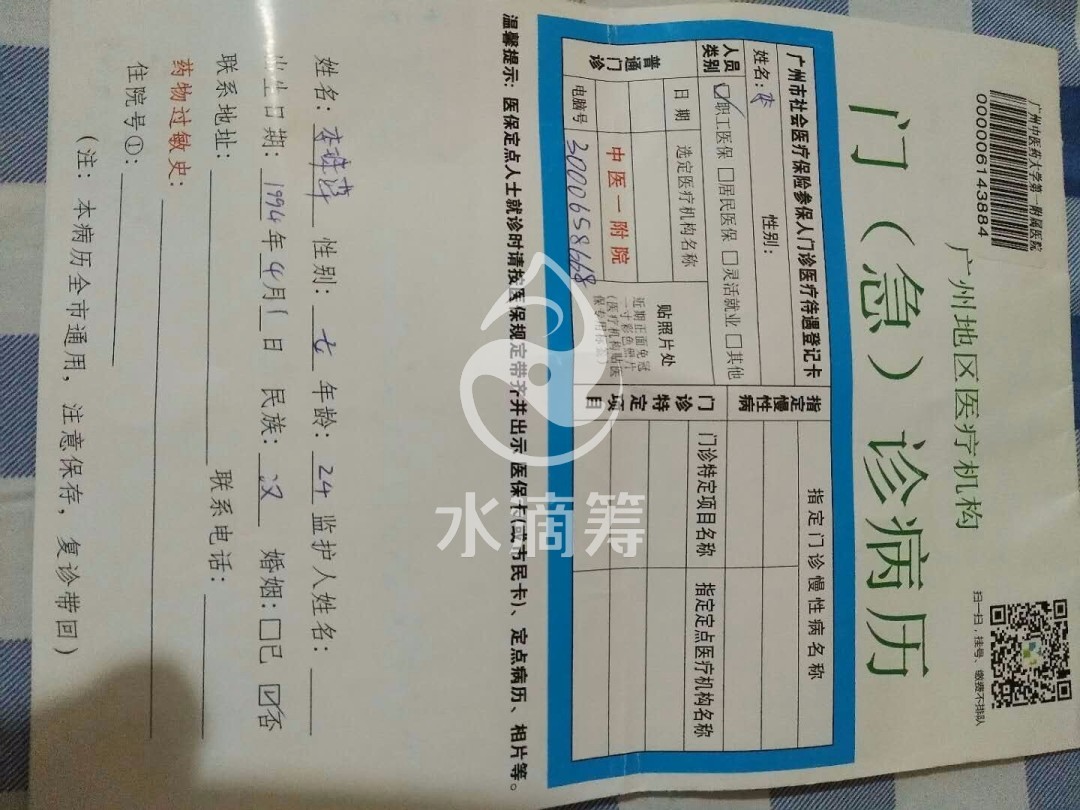 广州中医药大学第一附属医院
000006143884
扫一扫,挂号、缴费不排队
广州地区医疗机构
门(急)诊病历
广州市社会医疗保险参保人门诊医疗待遇登记卡
姓名:李 性别:
人员类别 ☑职工医保 □居民医保 □灵活就业 □其他
普通门诊 日期 选定医疗机构名称
中医一附院
电脑号 3000658668
贴照片处
近期正面免冠
一寸彩色照片
(医疗机构粘贴医
保专用标签)
指定慢性病 指定门诊慢性病名称
门诊特定项目 门诊特定项目名称 指定定点医疗机构名称
温馨提示:医保定点人士就诊时请按医保规定带齐并出示 医保卡(或市民卡)、定点病历、相片等。
姓名:李 性别:女 年龄:24 监护人姓名:
出生日期:1994年4月1日 民族:汉 婚姻:□已 ☑否
联系地址: 联系电话:
药物过敏史:
住院号①:
(注:本病历全市通用,注意保存,复诊带回)
水滴筹